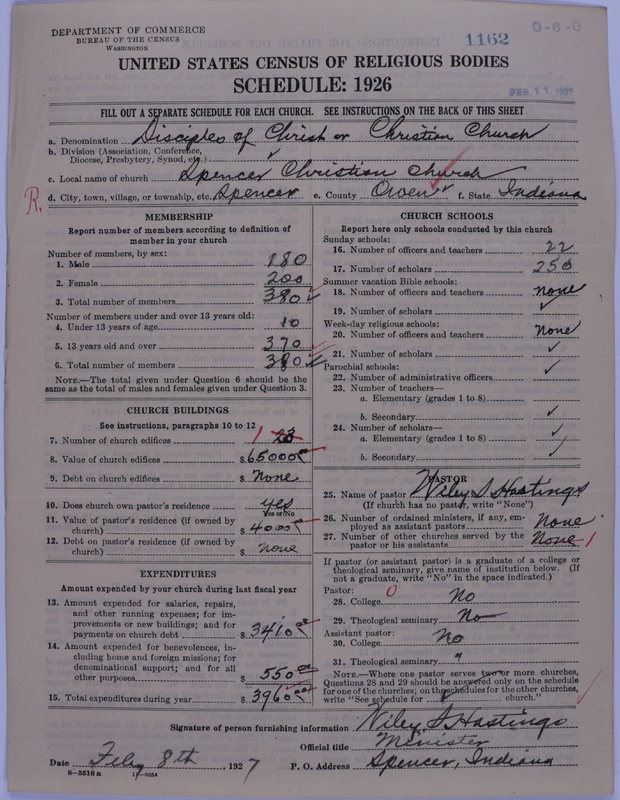 DEPARTMENT OF COMMERCE
BUREAU OF THE CENSUS
WASHINGTON
1162
0-6-0
UNITED STATES CENSUS OF RELIGIOUS BODIES
SCHEDULE: 1926
FEB 11 1927
FILL OUT A SEPARATE SCHEDULE FOR EACH CHURCH. SEE INSTRUCTIONS ON THE BACK OF THIS SHEET
a. Denomination Disciples of Christ or Christian Church
b. Division (Association, Conference, Diocese, Presbytery, Synod, etc.) ✓
c. Local name of church Spencer Christian Church
R. d. City, town, village, or township, etc. Spencer e. County Owen f. State Indiana
MEMBERSHIP
Report number of members according to definition of member in your church
Number of members, by sex:
1. Male 180
2. Female 200
3. Total number of members 380
Number of members under and over 13 years old:
4. Under 13 years of age 10
5. 13 years old and over 370
6. Total number of members 380
NOTE.—The total given under Question 6 should be the same as the total of males and females given under Question 3.
CHURCH BUILDINGS
See instructions, paragraphs 10 to 12
7. Number of church edifices 1
8. Value of church edifices $65000
9. Debt on church edifices $ None
10. Does church own pastor's residence? yes
Yes or No
11. Value of pastor's residence (if owned by church) $ 4000
12. Debt on pastor's residence (if owned by church) $ none
EXPENDITURES
Amount expended by your church during last fiscal year
13. Amount expended for salaries, repairs, and other running expenses; for improvements or new buildings; and for payments on church debt $ 3410.00
14. Amount expended for benevolences, including home and foreign missions; for denominational support; and for all other purposes $ 550.00
15. Total expenditures during year $ 3960.00
CHURCH SCHOOLS
Report here only schools conducted by this church
Sunday schools:
16. Number of officers and teachers 22
17. Number of scholars 250
Summer vacation Bible schools:
18. Number of officers and teachers none
19. Number of scholars ✓
Week-day religious schools:
20. Number of officers and teachers None
21. Number of scholars ✓
Parochial schools:
22. Number of administrative officers ✓
23. Number of teachers—
a. Elementary (grades 1 to 8)
b. Secondary ✓
24. Number of scholars—
a. Elementary (grades 1 to 8) ✓
b. Secondary ✓
PASTOR
25. Name of pastor Wiley S Hastings
(If church has no pastor, write "None")
26. Number of ordained ministers, if any, employed as assistant pastors None
27. Number of other churches served by the pastor or his assistants None 1
If pastor (or assistant pastor) is a graduate of a college or theological seminary, give name of institution below. (If not a graduate, write "No" in the space indicated.)
Pastor: 0
28. College No
29. Theological seminary No
Assistant pastor:
30. College No
31. Theological seminary "
NOTE.—Where one pastor serves two or more churches, Questions 28 and 29 should be answered only on the schedule for one of the churches; on the schedules for the other churches, write "See schedule for ........ church."
Signature of person furnishing information Wiley S Hastings
Official title Minister
Date Feby 8th, 1927 P. O. Address Spencer, Indiana
8—5518 a 11—9054